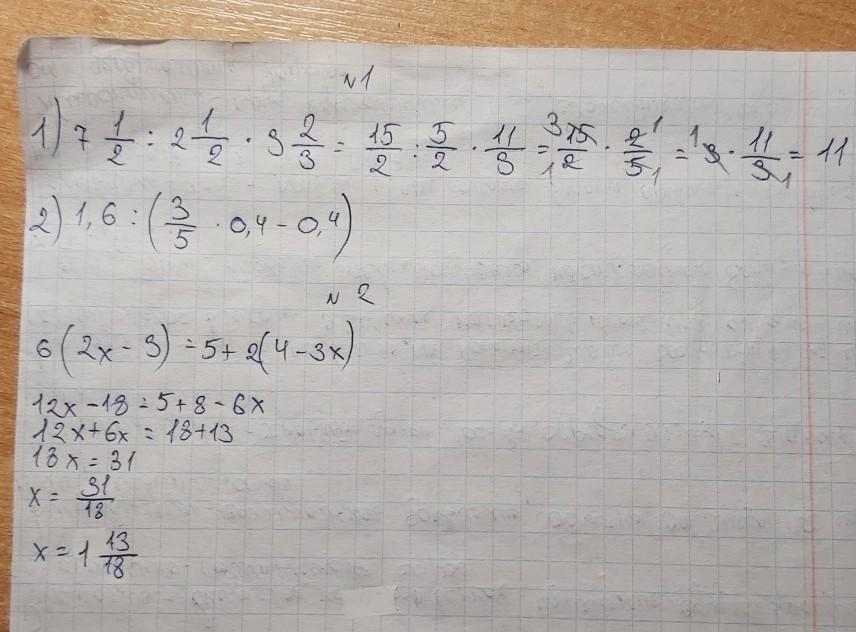 №1
1) 7 1/2 : 2 1/2 · 3 2/3 = 15/2 : 5/2 · 11/3 = 15/2 · 2/5 = 3 · 11/3 = 11
2) 1,6 : (3/5 · 0,4 - 0,4)
№ 2
6(2x - 3) = 5 + 2(4 - 3x)
12x - 18 = 5 + 8 - 6x
12x + 6x = 18 + 13
18x = 31
x = 31/18
x = 1 13/18